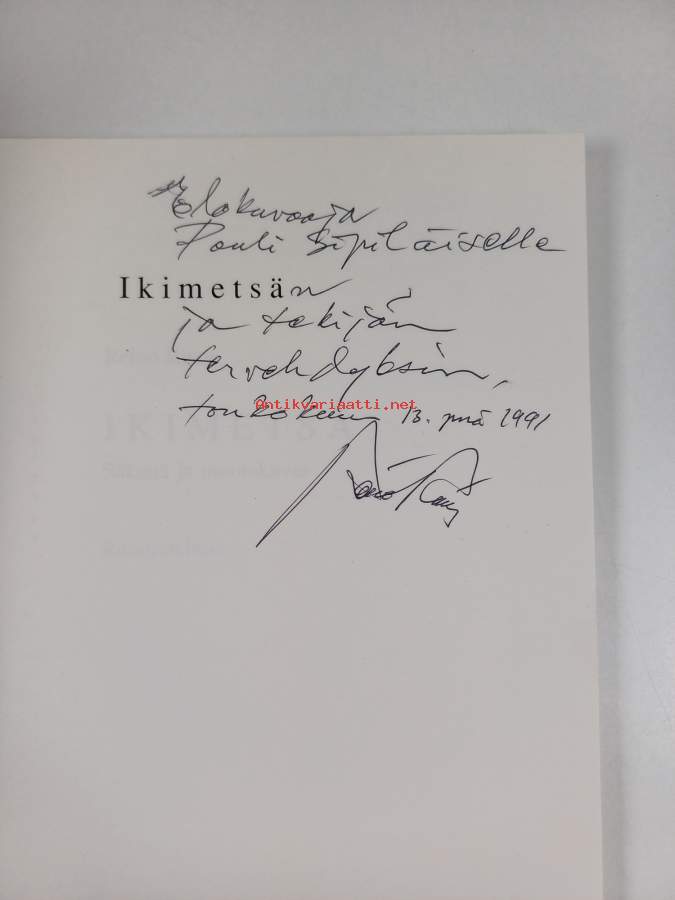 Elokuvaaja
Pouli Sipiläiselle
Ikimetsän
ja tekijän
tervehdyksin,
toukokuun 13. pnä 1991
Antikvariaatti.net
IKIMETSÄ